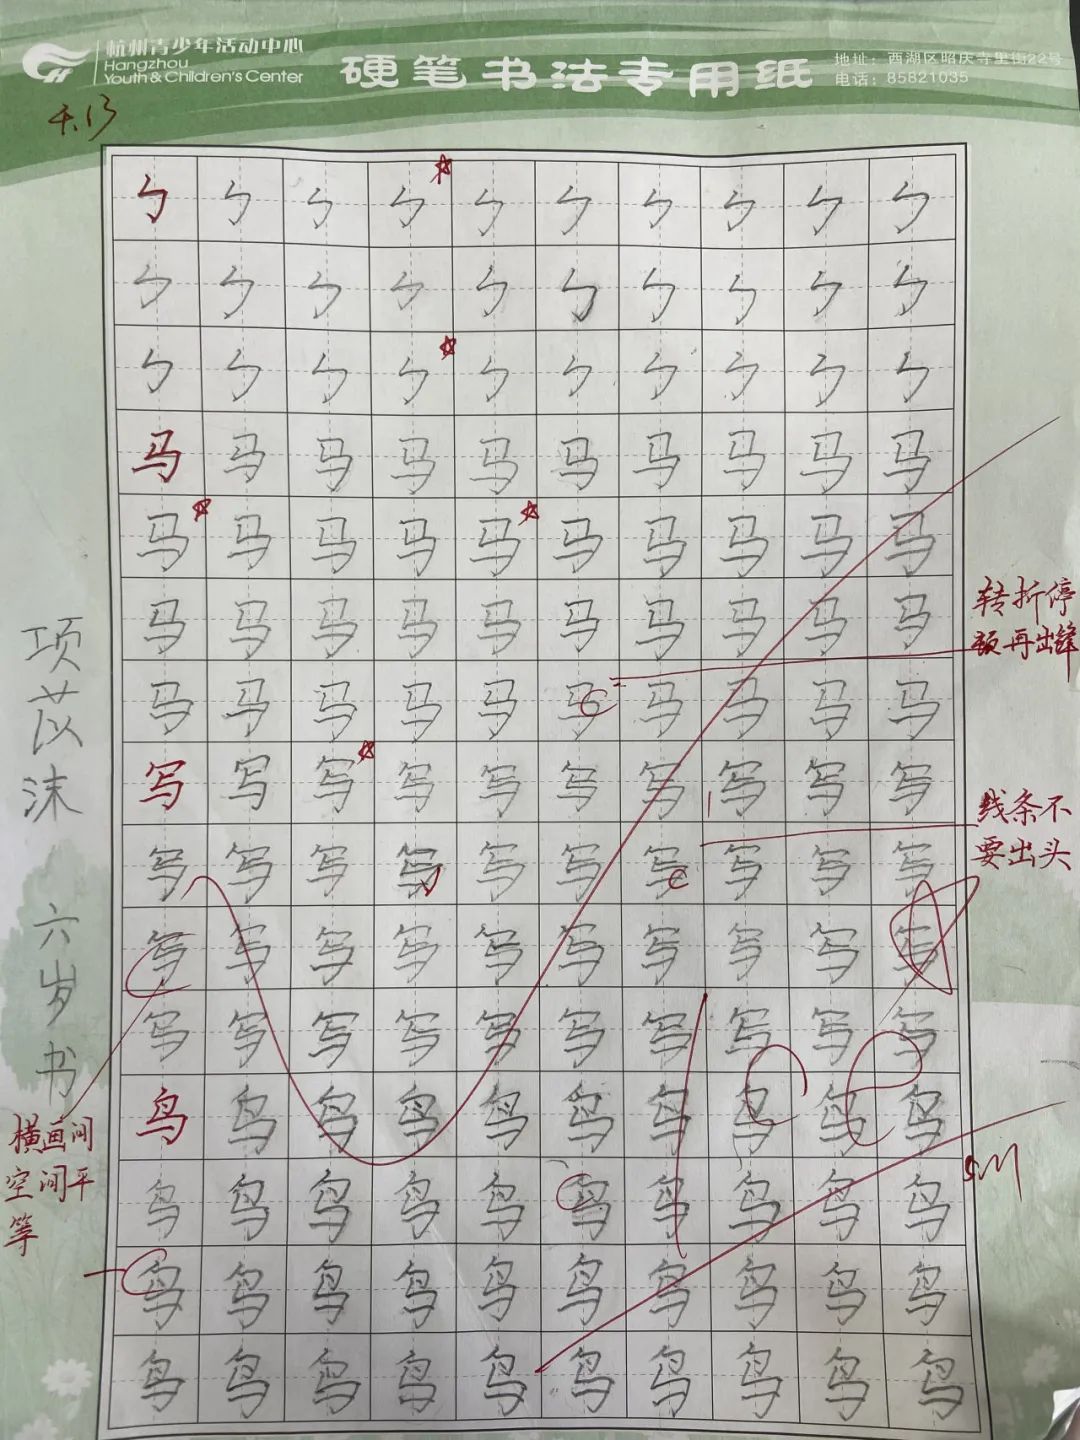 杭州青少年活动中心
Hangzhou
Youth & Children's Center
硬笔书法专用纸
地址：西湖区昭庆寺里街22号
电话：85821035
ㄅ ㄅ ㄅ ㄅ ㄅ ㄅ ㄅ ㄅ ㄅ ㄅ
ㄅ ㄅ ㄅ ㄅ ㄅ ㄅ ㄅ ㄅ ㄅ ㄅ
ㄅ ㄅ ㄅ ㄅ ㄅ ㄅ ㄅ ㄅ ㄅ ㄅ
马 马 马 马 马 马 马 马 马 马
马 马 马 马 马 马 马 马 马 马
马 马 马 马 马 马 马 马 马 马
马 马 马 马 马 马 马 马 马 马
写 写 写 写 写 写 写 写 写 写
写 写 写 写 写 写 写 写 写 写
写 写 写 写 写 写 写 写 写 写
写 写 写 写 写 写 写 写 写 写
鸟 鸟 鸟 鸟 鸟 鸟 鸟 鸟 鸟 鸟
鸟 鸟 鸟 鸟 鸟 鸟 鸟 鸟 鸟 鸟
鸟 鸟 鸟 鸟 鸟 鸟 鸟 鸟 鸟 鸟
鸟 鸟 鸟 鸟 鸟 鸟 鸟 鸟 鸟 鸟
转折停
顿再出锋
线条不
要出头
项苡沫 六岁书
横画间
空间平
等